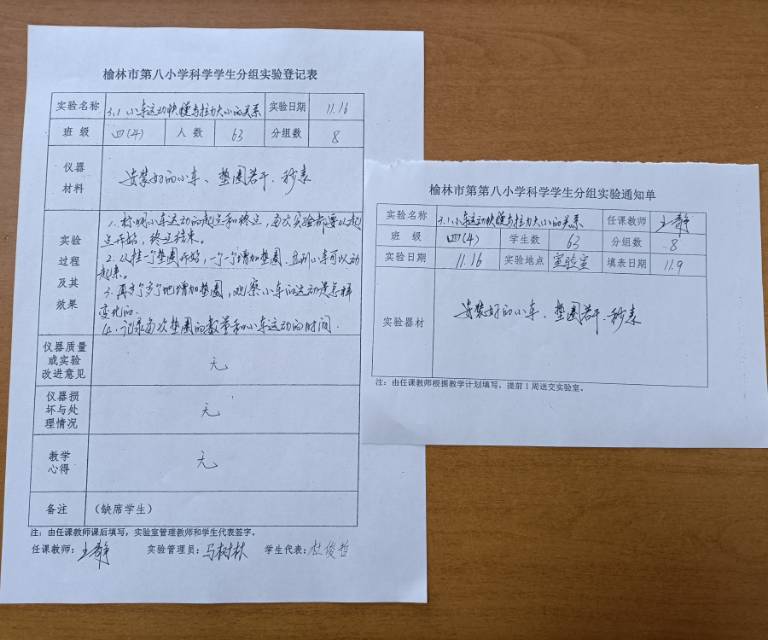 榆林市第八小学科学学生分组实验登记表
实验名称 3.1 小车运动快慢与拉力大小的关系 实验日期 11.16
班 级 四(4) 人 数 63 分组数 8
仪器材料 安装好的小车、垫圈若干、秒表
实验过程及其效果
1. 标明小车运动的起点和终点，每次实验都要从起
点开始，终点结束。
2. 从挂一个垫圈开始，一个个增加垫圈，直到小车可以动
起来。
3. 再多个多个地增加垫圈，观察小车的运动是怎样
变化的。
4. 记录每次垫圈的数量和小车运动的时间.
仪器质量或实验改进意见 无
仪器损坏与处理情况 无
教学心得 无
备注 (缺席学生)
注：由任课教师课后填写，实验室管理教师和学生代表签字。
任课教师：王静 实验管理员：马树林 学生代表：杜俊哲
榆林市第第八小学科学学生分组实验通知单
实验名称 3.1小车运动快慢与拉力大小的关系 任课教师 王静
班 级 四(4) 学生数 63 分组数 8
实验日期 11.16 实验地点 实验室 填表日期 11.9
实验器材 安装好的小车、垫圈若干、秒表
注：由任课教师根据教学计划填写，提前1周送交实验室。